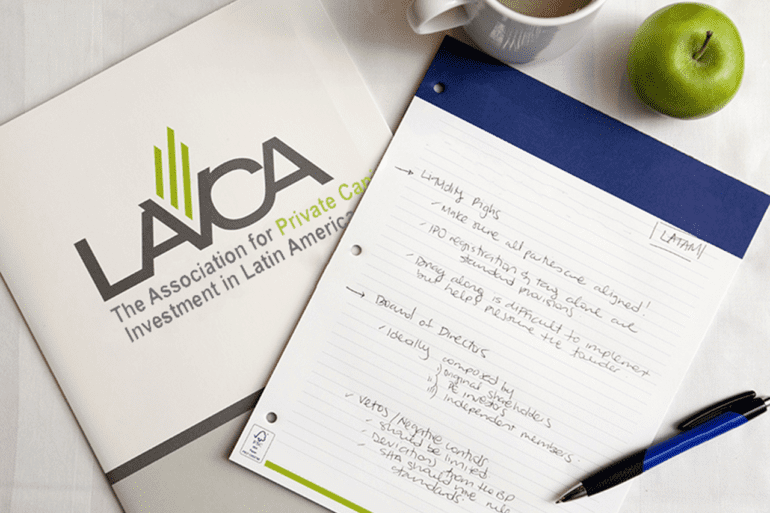 LAVCA
The Association for Private Cap
Investment in Latin America
LATAM
→ Liquidity Rights
✓ Make sure all parties are aligned!
✓ IPO registration & tag along are
standard provisions
✓ Drag along is difficult to implement
but helps pressure the founder
→ Board of Directors
✓ Ideally composed by
i) original shareholders
ii) PE investors
iii) independent members.
✓ Vetos/Negative Controls
✓ should be limited
✓ Deviations from the BP
SHA should have rule
standards.
FSC